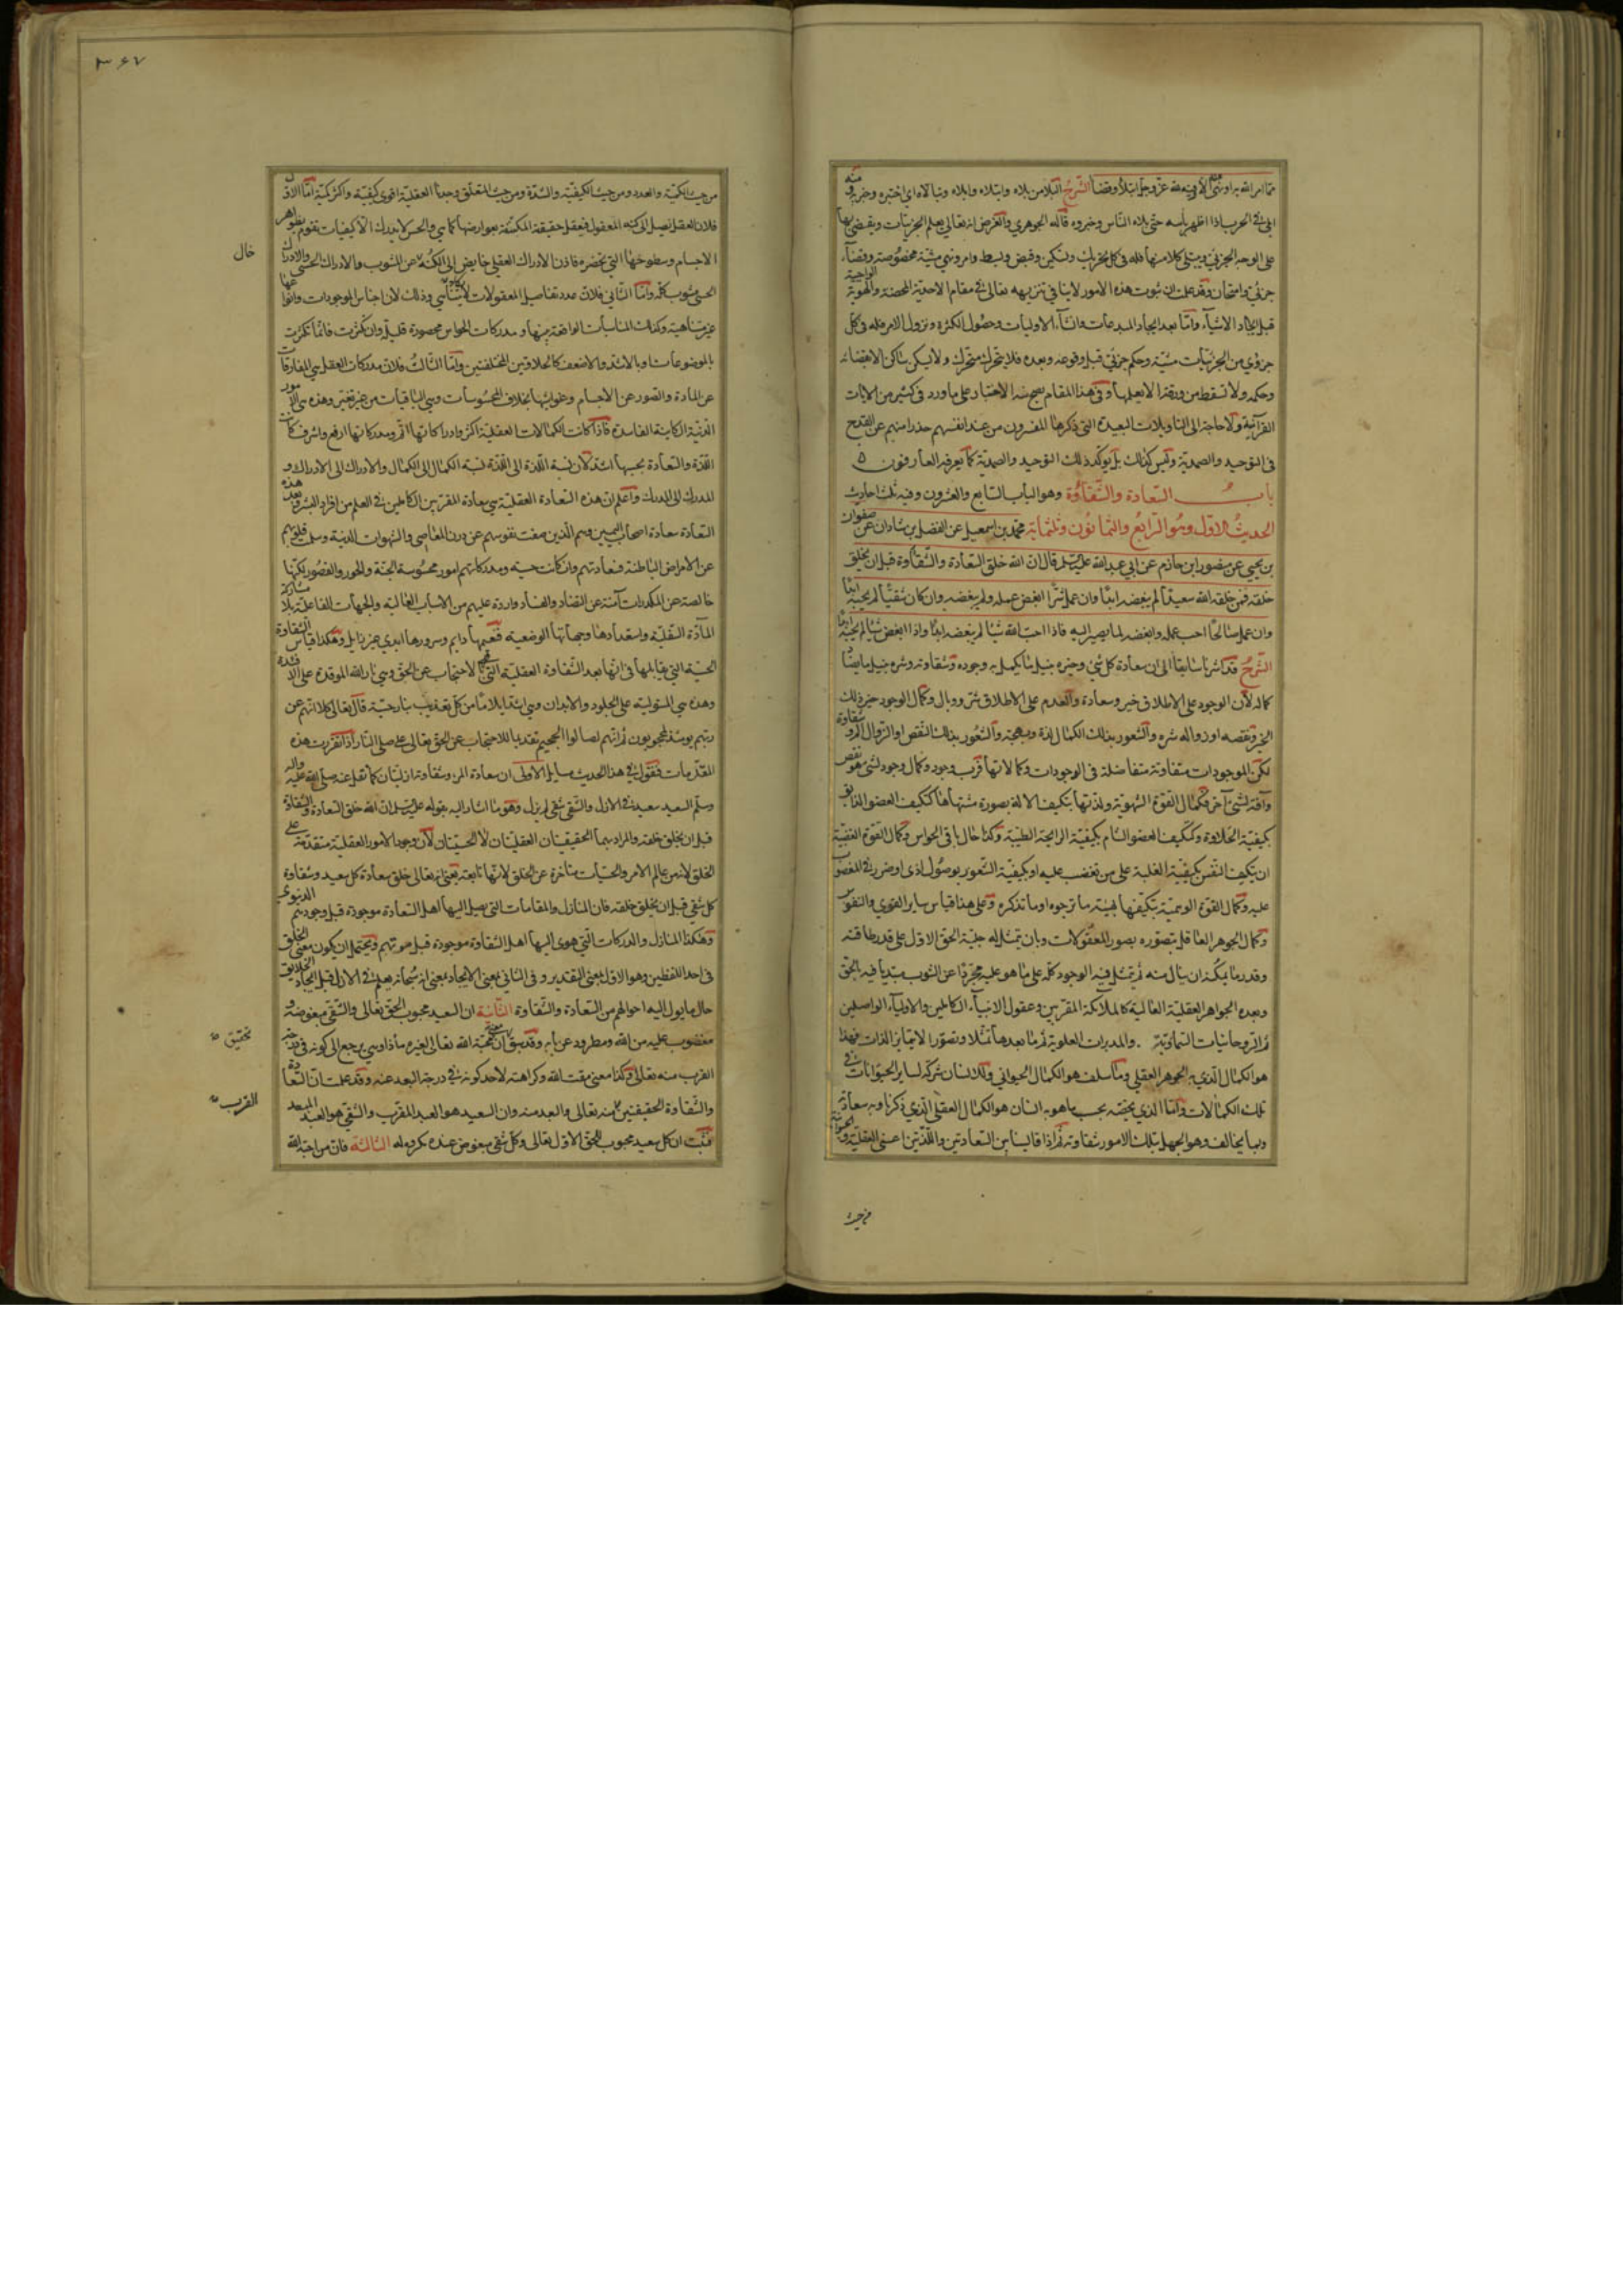 مما امر الله به او نهى عنه الا وفيه لله عز وجل ابتلاء وقضاء الشرح البلا من بلاه وابتلاه وابلاه وتبالاه اى اختبره وجربه ومنه
ابلى فى الحرب اذا اظهر بأسه حتى بلاه الناس وخبروه قاله الجوهري والغرض انه تعالى يعلم الجزئيات ويقضى بها
على الوجه الجزئي ويبتلى كلا منها فله فى كل تحريك وتسكين وقبض وبسط وامر ونهى مشية مخصوصة وقضاء
جزئي وامتحان وقد علمت ان ثبوت هذه الامور لا ينافي تنزيهه تعالى فى مقام الاحدية المحضة والهوية الواجبية
قبل ايجاد الاشياء واما بعد ايجاد المبدعات وانشاء الاوليات وحصول الكثرة ونزول الامر فله فى كل
جزوي من الجزئيات مشية وحكم جزئي قبل وقوعه وبعده فلا يتحرك متحرك ولا يسكن ساكن الا بقضائه
وحكمه ولا تسقط من ورقة الا يعلمها وفى هذا المقام يصح منه الاختبار على ما ورد فى كثير من الايات
القرآنية ولا حاجة الى التاويلات البعيدة التى ذكرها المفسرون من عند انفسهم حذرا منهم عن القدح
فى التوحيد والصمدية وليس كذلك بل يوكد ذلك التوحيد والصمدية كما يعرفه العارفون
باب السعادة والشقاوة وهو الباب السابع والعشرون وفيه ثلث احاديث
الحديث الاول وهو الرابع والثمانون وثلثماية محمد بن اسمعيل عن الفضل بن شاذان عن صفوان
بن يحيى عن منصور ابن حازم عن ابي عبد الله عليه السلم قال ان الله خلق السعادة والشقاوة قبل ان يخلق
خلقه فمن خلقه الله سعيدا لم يبغضه ابدا وان عمل شرا ابغض عمله ولم يبغضه وان كان شقيا لم يحبه ابدا
وان عمل صالحا احب عمله وابغضه لما يصير اليه فاذا احب الله شيئا لم يبغضه ابدا واذا ابغض شيئا لم يحبه ابدا
الشرح قد اشرنا سابقا الى ان سعادة كل شئ وخيره بنيل ما يكمل به وجوده وشقاوته وشره بنيل ما يضاد
كماله لان الوجود على الاطلاق خير وسعادة والعدم على الاطلاق شر ووبال وكمال الوجود خير ذلك
الخير ونقصه او زواله شره والشعور بذلك الكمال لذة وبهجة والشعور بذلك النقص او الزوال الم وشقاوة
لكن الموجودات متفاوتة متفاضلة فى الوجودات وكمالاتها فرب وجود وكمال وجود لشئ هو نقص
وآفة لشئ آخر فكمال القوة الشهوية ولذتها بتكيف الالة بصورة مشتهاها كتكيف العضو الذايق
بكيفية الحلاوة وكتكيف العضو الشام بكيفية الرايحة الطيبة وكذا حال باقى الحواس وكمال القوة الغضبية
ان يتكيف النفس بكيفية الغلبة على من تغضب عليه او بكيفية الشعور بوصول اذى او ضرر فى المغضوب
عليه وكمال القوة الوهمية بتكيفها بهيئة ما ترجوه او ما تذكره وعلى هذا قياس ساير القوي والنفوس
وكمال الجوهر العاقل بتصوره بصور المعقولات وبان يتمثل له جلية الحق الاول على قدر طاقته
وقدر ما يمكنه ان ينال منه ثم يتمثل فيه الوجود كله على ما هو عليه مجردا عن الشوب مبتديا فيه بالحق
وبعده الجواهر العقلية العالية كالملائكة المقربين وعقول الانبياء الكاملين والاولياء الواصلين
ثم الروحانيات السماوية والمدبرات العلوية ثم ما بعدها تمثلا وتصورا لا يتمايز الذات فهذا
هو الكمال الذي به الجوهر العقلي وما سلف هو الكمال الحيواني وللانسان شركة لساير الحيوانات فى
تلك الكمالات واما الذي يختص به بحسب ما هو به انسان هو الكمال العقلى الذي ذكرنا وبه سعادته
وبما يخالفه وهو الجهل بتلك الامور شقاوته ثم اذا قايسنا بين السعادتين واللذتين اعنى العقلية والحيوانية
من حيث
٣٦٧
من حيث الكمية والعدد ومن حيث الكيفية والشدة ومن حيث المتعلق وجدنا العقلية اقوى كيفية واكثر كمية اما الاول
فلان العقل يصل الى كنه المعقول فيعقل حقيقته المكتنفة بعوارضها كما هي والحس لا يدرك الا كيفيات تقوم بظواهر
الاجسام وسطوحها التي تحضره فاذن الادراك العقلى خايض الى الكنه خال عن الشوب والادراك الحسى والادراك
الحسى شوب كله واما الثانى فلان عدد تفاصيل المعقولات لا يتناهي وذلك لان اجناس الموجودات وانواعها
غير متناهية وكذلك المناسبات الواقعة بينها ومدركات الحواس محصورة قليلة وان كثرت فانما تكثرت
بالموضوعات او بالاشد والاضعف كالحلاوتين المختلفتين واما الثالث فلان مدركات العقل هي المفارقات
عن المادة والصور عن الاجسام وعلويها بخلاف المحسوسات وهي الباقيات من غير تغير وهذه هى الامور
الدنية الكاينة الفاسدة فاذا كانت الكمالات العقلية اكثر وادراكاتها اتم ومدركاتها ارفع واشرف كانت
اللذة والسعادة بحسبها اشد لان نسبة اللذة الى اللذة نسبة الكمال الى الكمال والادراك الى الادراك و
المدرك الى المدرك واعلم ان هذه السعادة العقلية هى سعادة المقربين الكاملين فى العلم من افراد البشر وبعد هذه
السعادة سعادة اصحاب اليمين وهم الذين صفت نفوسهم عن درن المعاصى والشهوات الدنية وسلمت قلوبهم
عن الامراض الباطنة فسعادتهم وان كانت حسية ومدركاتهم امور محسوسة الجنة والحور والقصور لكنها
خالصة عن المكدرات آمنة عن التضاد والفساد واردة عليهم من الاسباب العالية والجهات الفاعلة بلا مشاركة
المادة السفلية واستعدادها وجهاتها الوضعية فنعيمها دايم وسرورها ابدي غير زايل وهكذا قياس الشقاوة
الحسية التي يقابلها فى انها بعد الشقاوة العقلية التى هي الاحتجاب عن الحق وهي نار الله الموقدة على الافئدة
وهذه هي المستولية على الجلود والابدان وهي اشد ايلاما من كل تعذيب بنار حسية قال تعالى كلا انهم عن
ربهم يومئذ لمحجوبون ثم انهم لصالوا الجحيم تقديما للاحتجاب عن الحق تعالى على صلى النار اذا تقررت هذه
المقدمات فنقول فى هذا الحديث مسايل الاولى ان سعادة المرء وشقاوته ازليتان كما نقل عنه صلى الله عليه واله
وسلم السعيد سعيد فى الازل والشقى شقى لم يزل وهو ما اشار اليه بقوله عليه السلم ان الله خلق السعادة والشقاوة
قبل ان يخلق خلقه والمراد بهما الحقيقيتان العقليتان لا الحسيتان لان وجود الامور العقلية متقدمة على
الخلق لانهن عالم الامر والحسيات متاخرة عن الخلق لانها تابعة يعنى انه تعالى خلق سعادة كل سعيد وشقاوة
كل شقى قبل ان يخلق خلقه فان المنازل والمقامات التى يصل اليها اهل السعادة موجودة قبل وجودهم الدنيوى
وهكذا المنازل والدركات التي هوى اليها اهل الشقاوة موجودة قبل موتهم ويحتمل ان يكون معنى الخلق
فى احد اللفظين وهو الاول بمعنى التقدير وفى الثانى بمعنى الايجاد بمعنى انه سبحانه يعلم فى الازل قبل ايجاد الخلايق
حال ما يول اليه احوالهم من السعادة والشقاوة الثانية ان السعيد محبوب الحق تعالى والشقى مبغوضه و
مغضوب عليه من الله ومطرود عن بابه وقد سبق ان معنى محبة الله تعالى لغيره ماذا وهي يرجع الى كونه فى درجة
القرب منه تعالى وكذا معنى مقت الله وكراهته لاحد كونه فى درجة البعد عنه وقد علمت ان السعادة
والشقاوة الحقيقتين منه تعالى والبعد منه وان السعيد هو العبد المقرب والشقى هو العبد المبعد
فثبت ان كل سعيد محبوب للحق الاول تعالى وكل شقى مبغوض عنده مكروه له الثالثة فان من احبه الله
خال
تحقيق
القرب